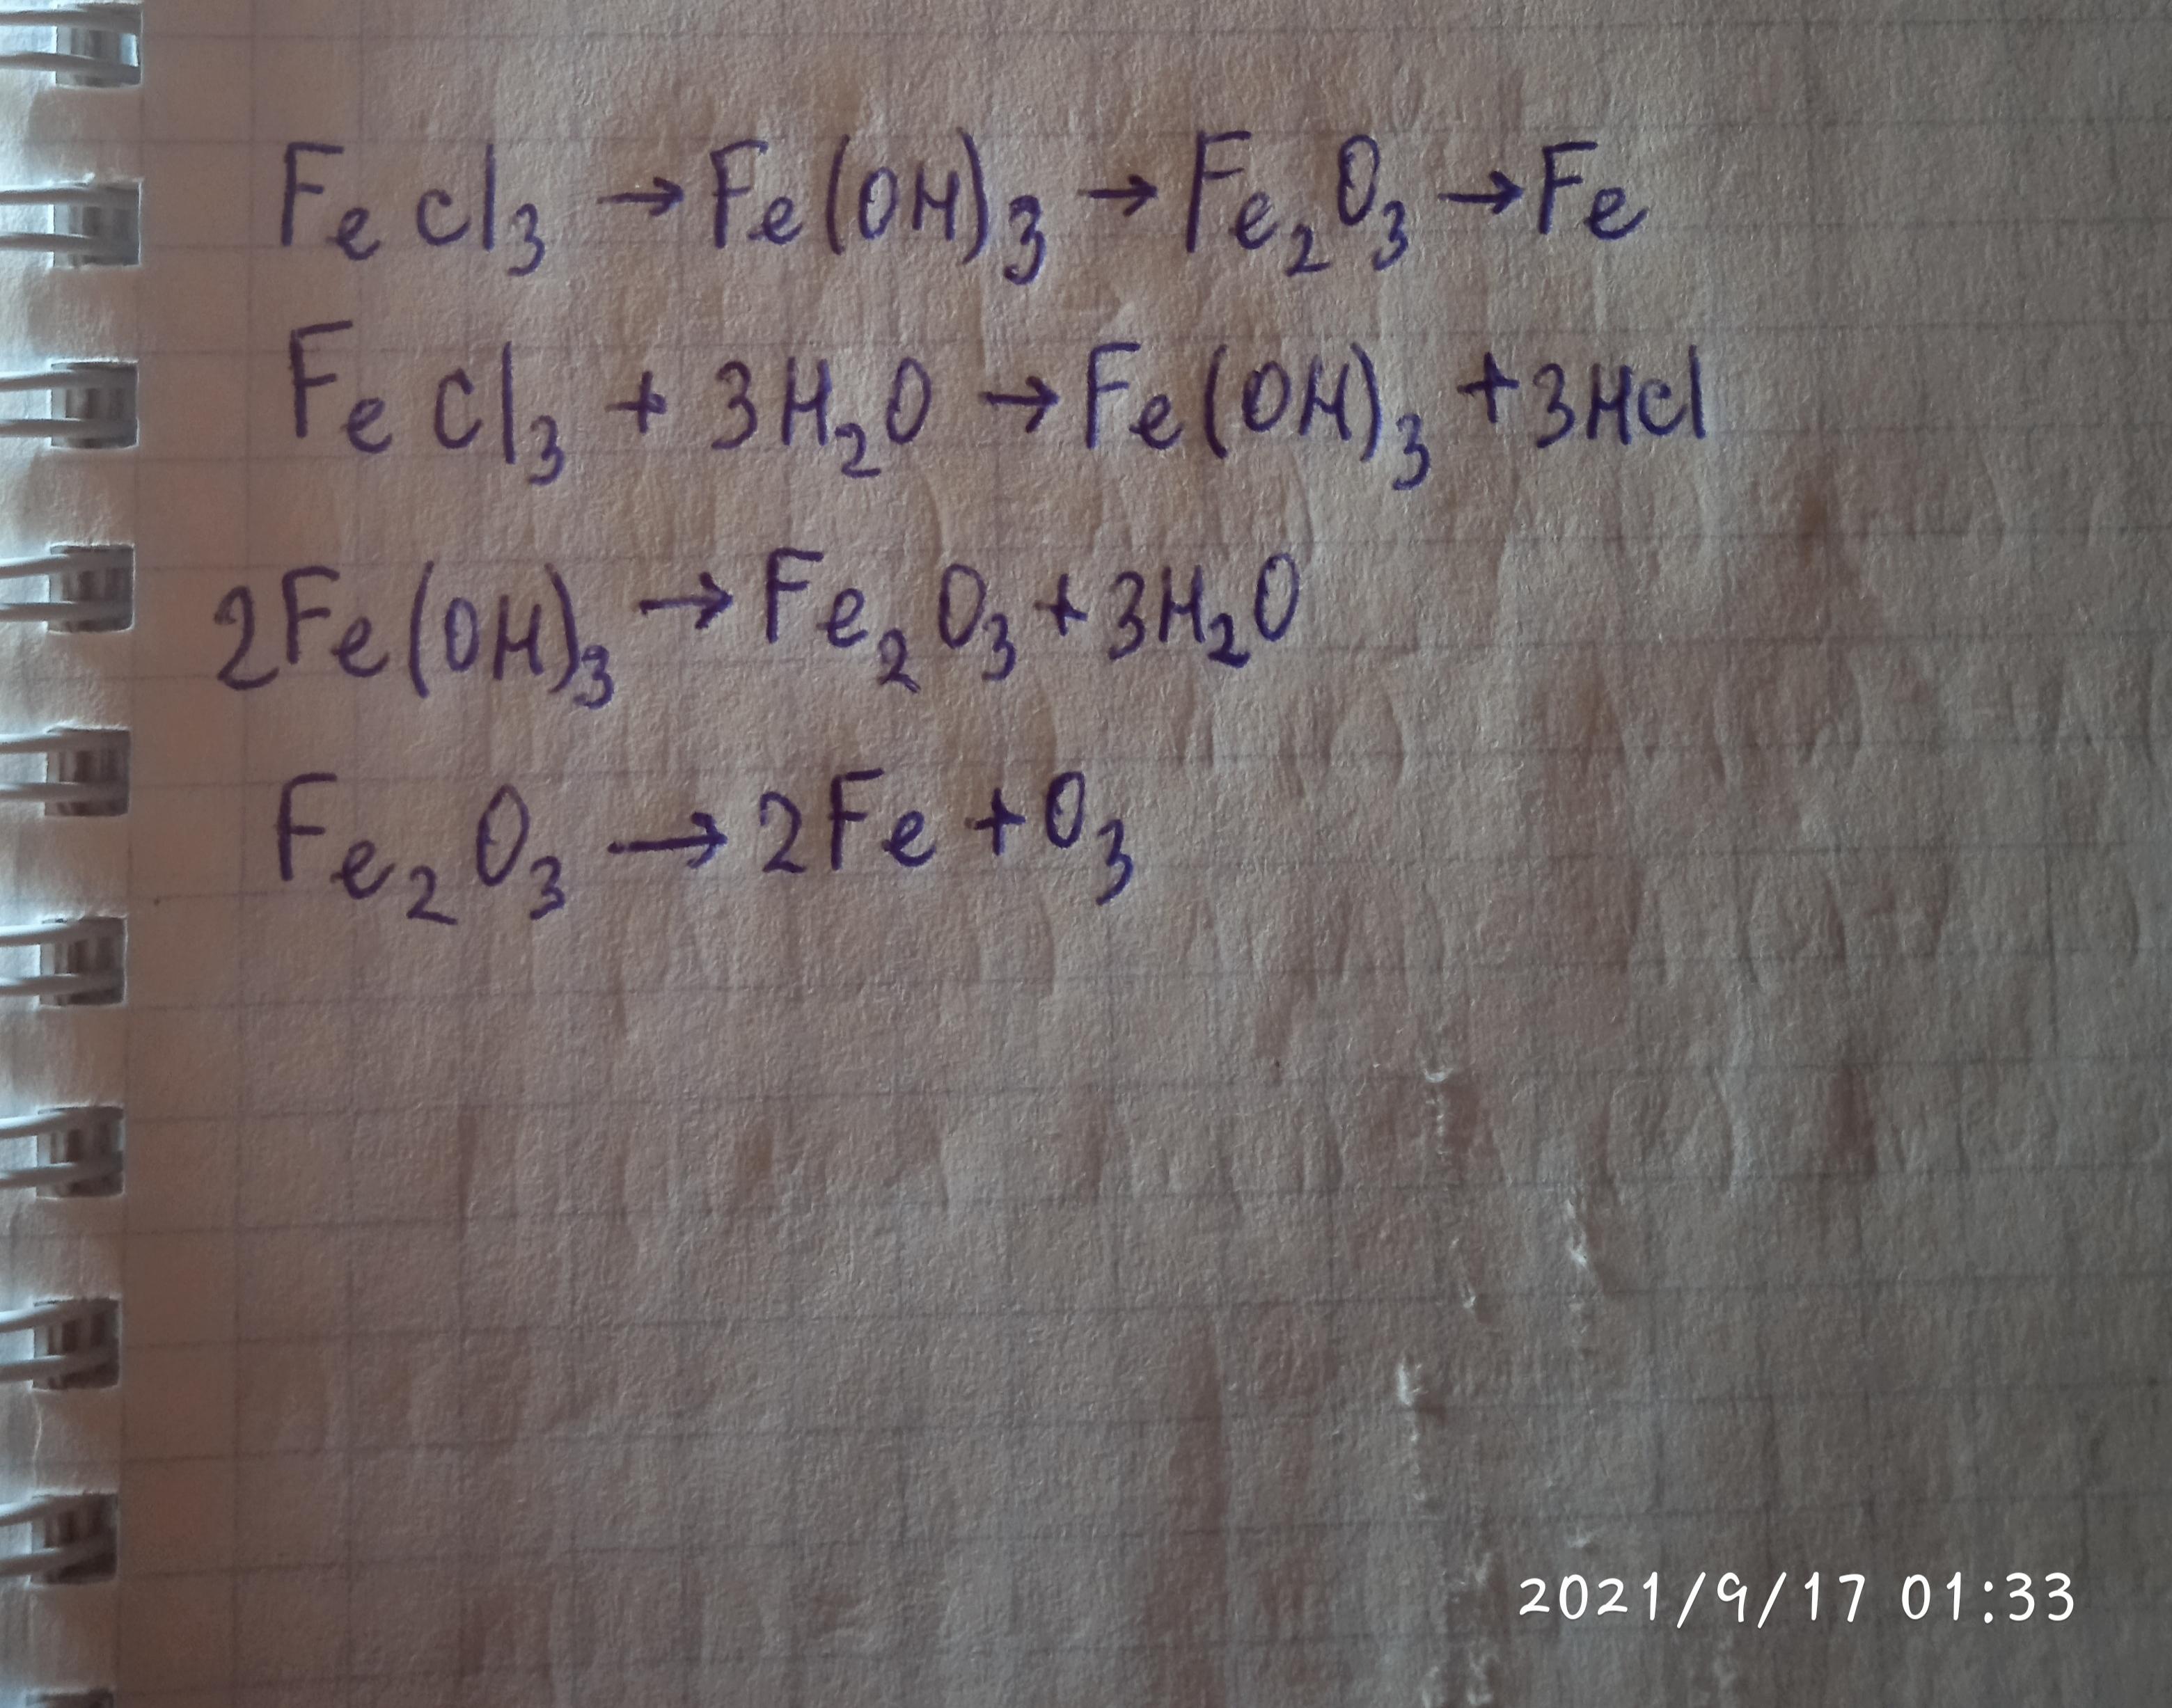 FeCl₃ → Fe(OH)₃ → Fe₂O₃ → Fe
FeCl₃ + 3H₂O → Fe(OH)₃ + 3HCl
2Fe(OH)₃ → Fe₂O₃ + 3H₂O
Fe₂O₃ → 2Fe + O₃
2021/9/17 01:33